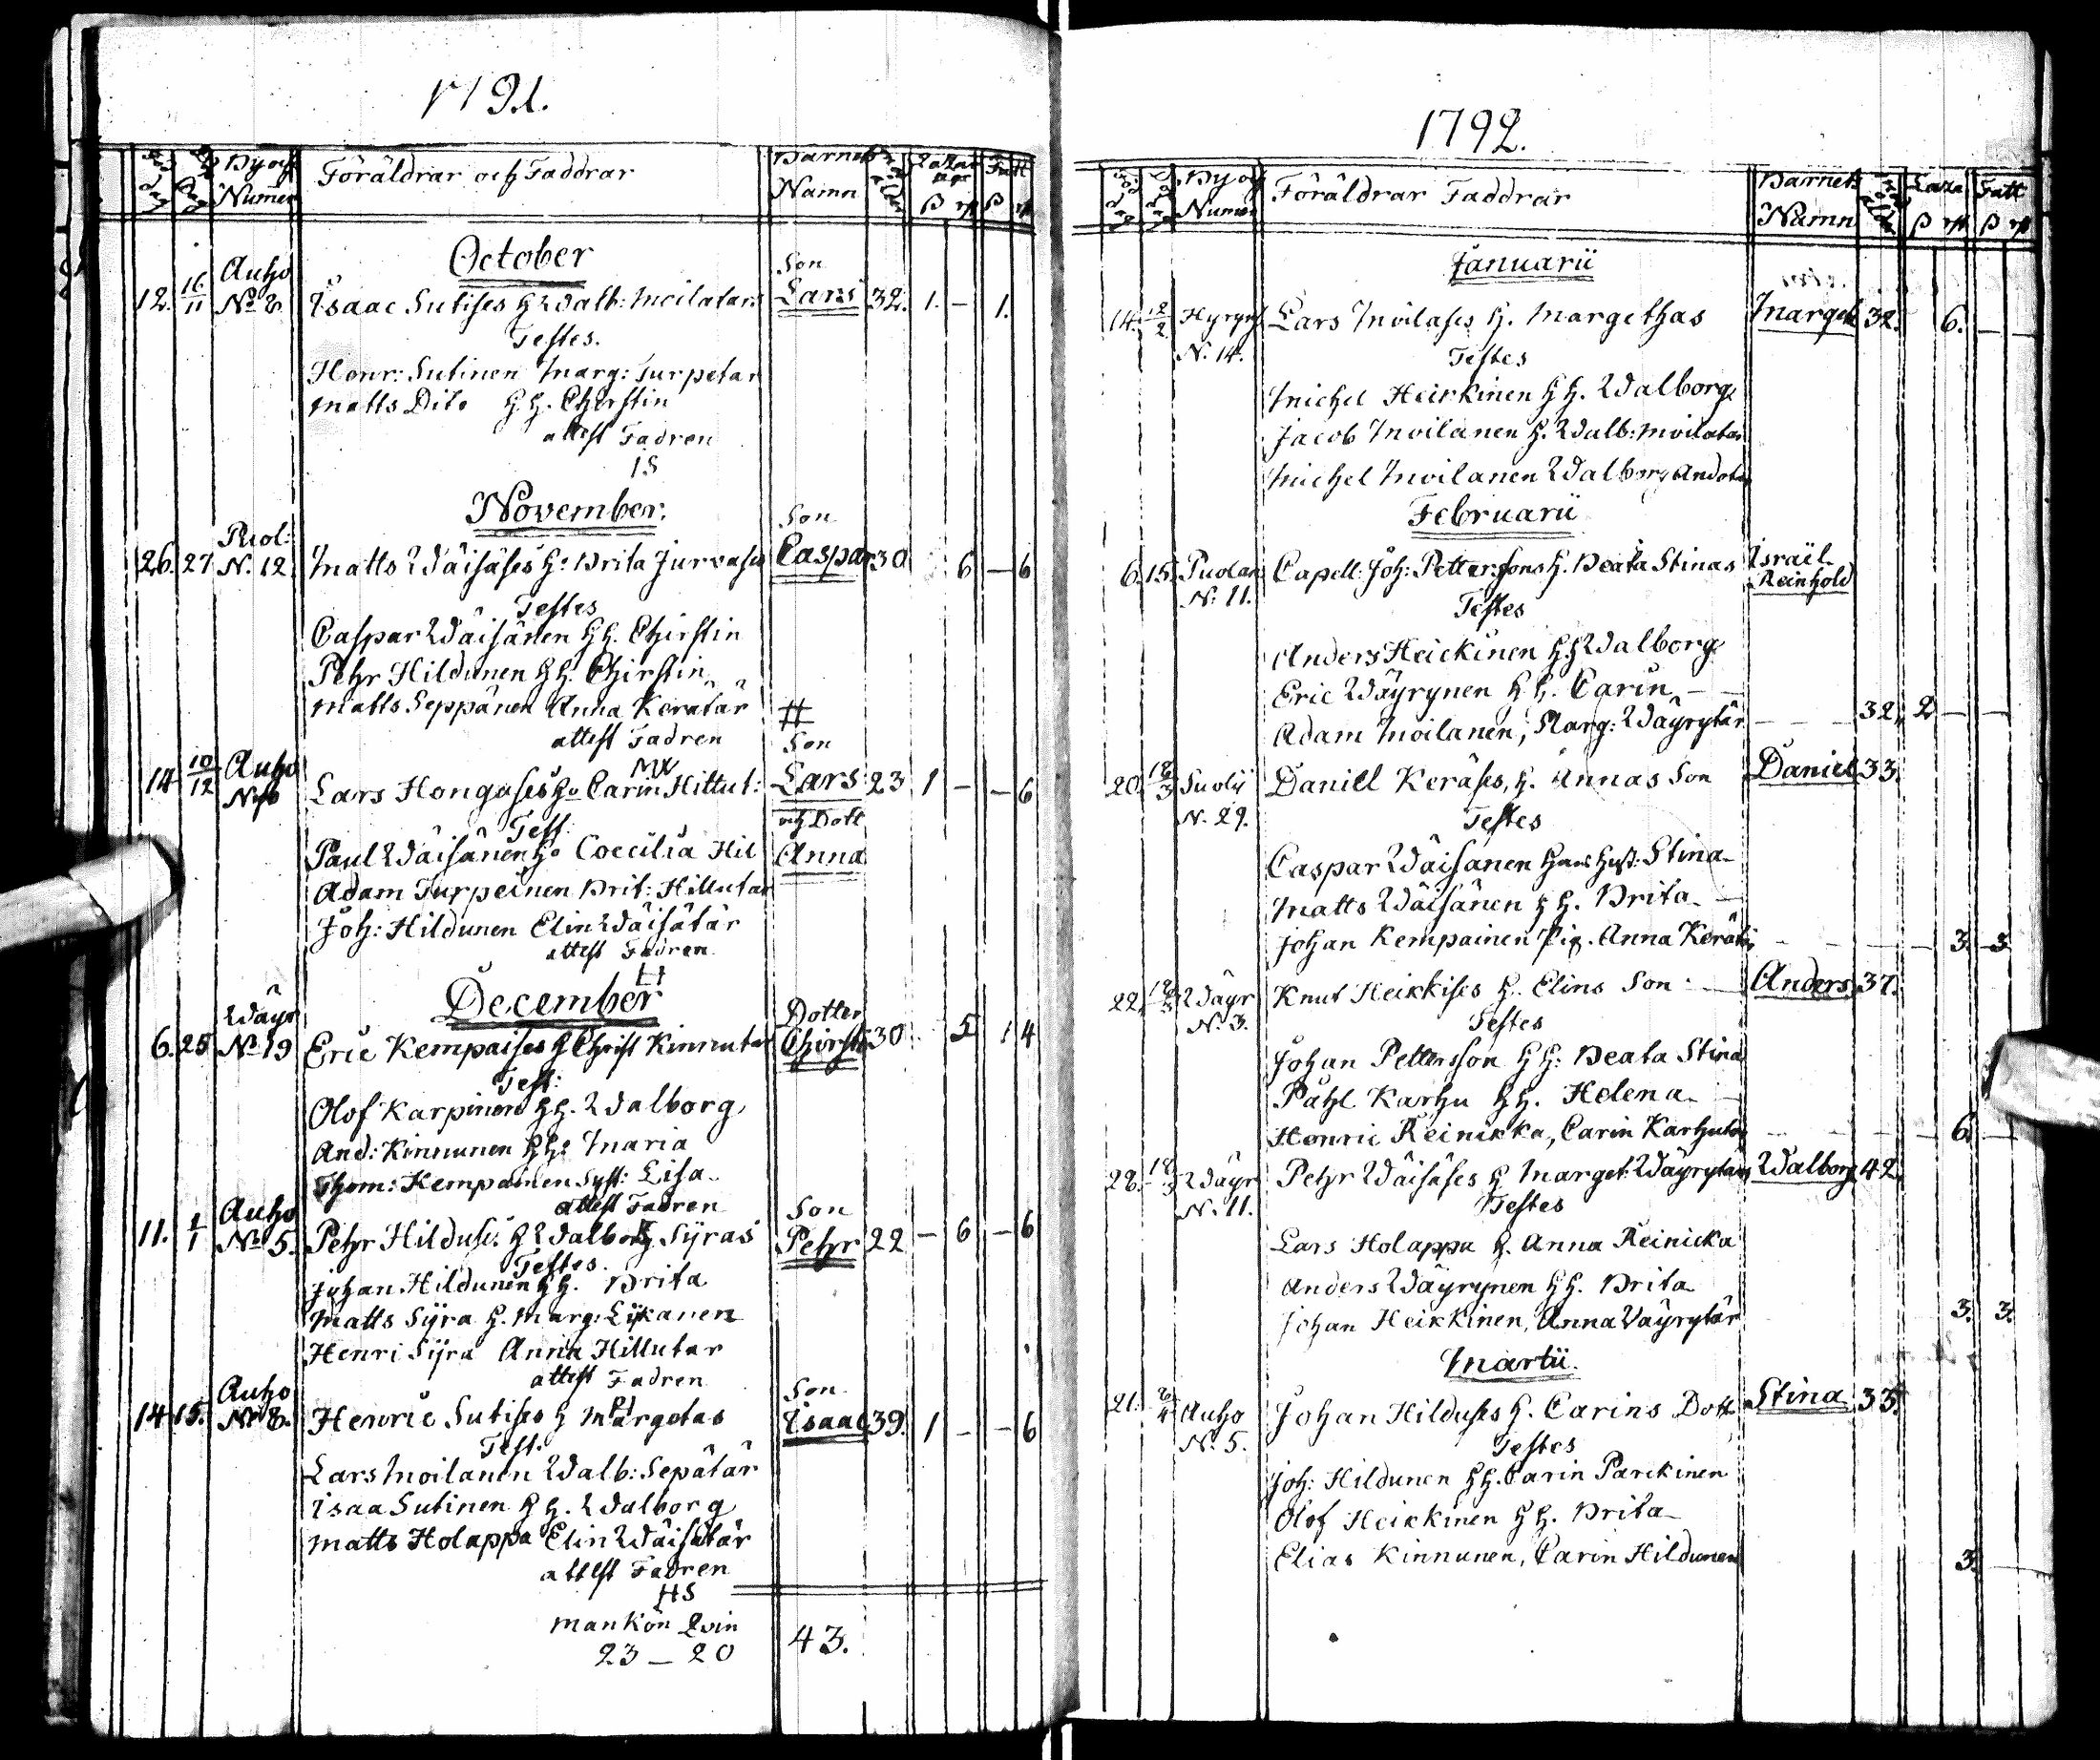 1791.
Föräldrar och Faddrar
Barnets Namn
By och Numer
October
12. 16/11 Auho No 8. Isaac Sutises h Walb: Moilatars Son Lars 32. 1. – 1.
Testes.
Henr: Sutinen Marg: Turpetar
Matts Dito h h. Chirstin
attest Fadren
IS
November.
26. 27 Puol: N. 12 Matts Wäisäses h: Brita Jurvases Son Caspar 30 6 – 6
Testes
Caspar Wäisänen h h. Chirstin
Pehr Hildunen h h. Chirstin
Matts Seppänen Anna Kerätär
attest Fadren
MW
14 10/12 Auho Lars Hongases h: Carin Hittut: Son Lars 23 1 – – 6
och Dott Anna
Test:
Paul Wäisänen h: Coecilia Hil
Adam Turpeinen Brit: Hillutar
Joh: Hildunen Elin Wäisätär
attest Fadren
LH
December
6. 25 Wäyr No 19 Eric Kempaises h Christ Kinnutar Dotter Chirst 30 5 1 4
Test:
Olof Karpinen h h. Walborg
And: Kinnunen h h: Maria
Thom: Kempainen Syst: Lisa
attest Fadren
11. 1/1 Auho No 5. Pehr Hilduses h Walborg Syräs Son Pehr 22 – 6 – 6
Testes.
Johan Hildunen h h. Brita
Matts Syrä h. Marg: Lykanen
Henri Syrä Anna Hillutar
attest Fadren
14 15. Auho No 8. Henric Sutises h Margetas Son Isaac 39. 1 – – 6
Test.
Lars Moilanen Walb: Sepätär
Isaa Sutinen h h. Walborg
Matts Holappa Elin Wäisätär
attest Fadren
HS
Mankön Qvin
23 – 20 43.
1792.
By och Numer
Föräldrar Faddrar
Barnets Namn
Fatt
Januarii
14. 12/2 Hyryns N. 14. Lars Moilases h. Margethas Marget 32. 6. –
Testes
Michel Heikkinen h h. Walborg
Jacob Moilanen h. Walb: Moilatar
Michel Moilanen Walborg
Februarii
6. 15. Puolan N: 11. Capell: Joh: Pettersons h. Beata Stinas Israël Reinhold
Testes
Anders Heickinen h h Walborg
Eric Wäyrynen h h. Carin
Adam Moilanen, Marg: Wäyrytär 32, 2 – –
20. 18/3 N. 29. Daniel Keräses, h. Annas Son Daniel 33.
Testes
Caspar Wäisänen hans hust: Stina
Matts Wäisänen h h. Brita
Johan Kempainen Pig. Anna Kerät: 3. 3
22. 18/3 Wäyr N: 3. Knut Heikkises h. Elins Son Anders 37.
Testes
Johan Pettersson h h: Beata Stina
Påhl Karhu h h. Helena
Henric Reinikka, Carin Karhutar 6. –
28. 18/3 Wäyr N. 11. Pehr Wäisäses h Marget: Wäyrytars Walborg 42.
Testes
Lars Holappa h. Anna Reinicka
Anders Wäyrynen h h. Brita
Johan Heikkinen, Anna Väyrytär 3. 3.
Martii.
21. Auho N. 5. Johan Hilduses h. Carins Dott Stina 35.
Testes
Joh: Hildunen h h. Carin Parckinen
Olof Heikkinen h h. Brita
Elias Kinnunen, Carin Hildunen 3. –